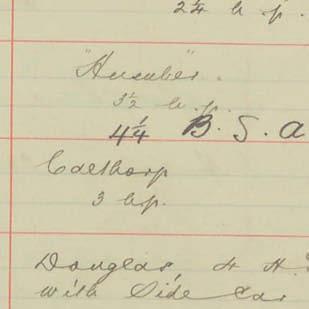 2¾ h.p.
"Humber".
3½ h.p.
4¼ B.S.A
Calthorp
3 h.p.
Douglas, 4 H.
with Side Car